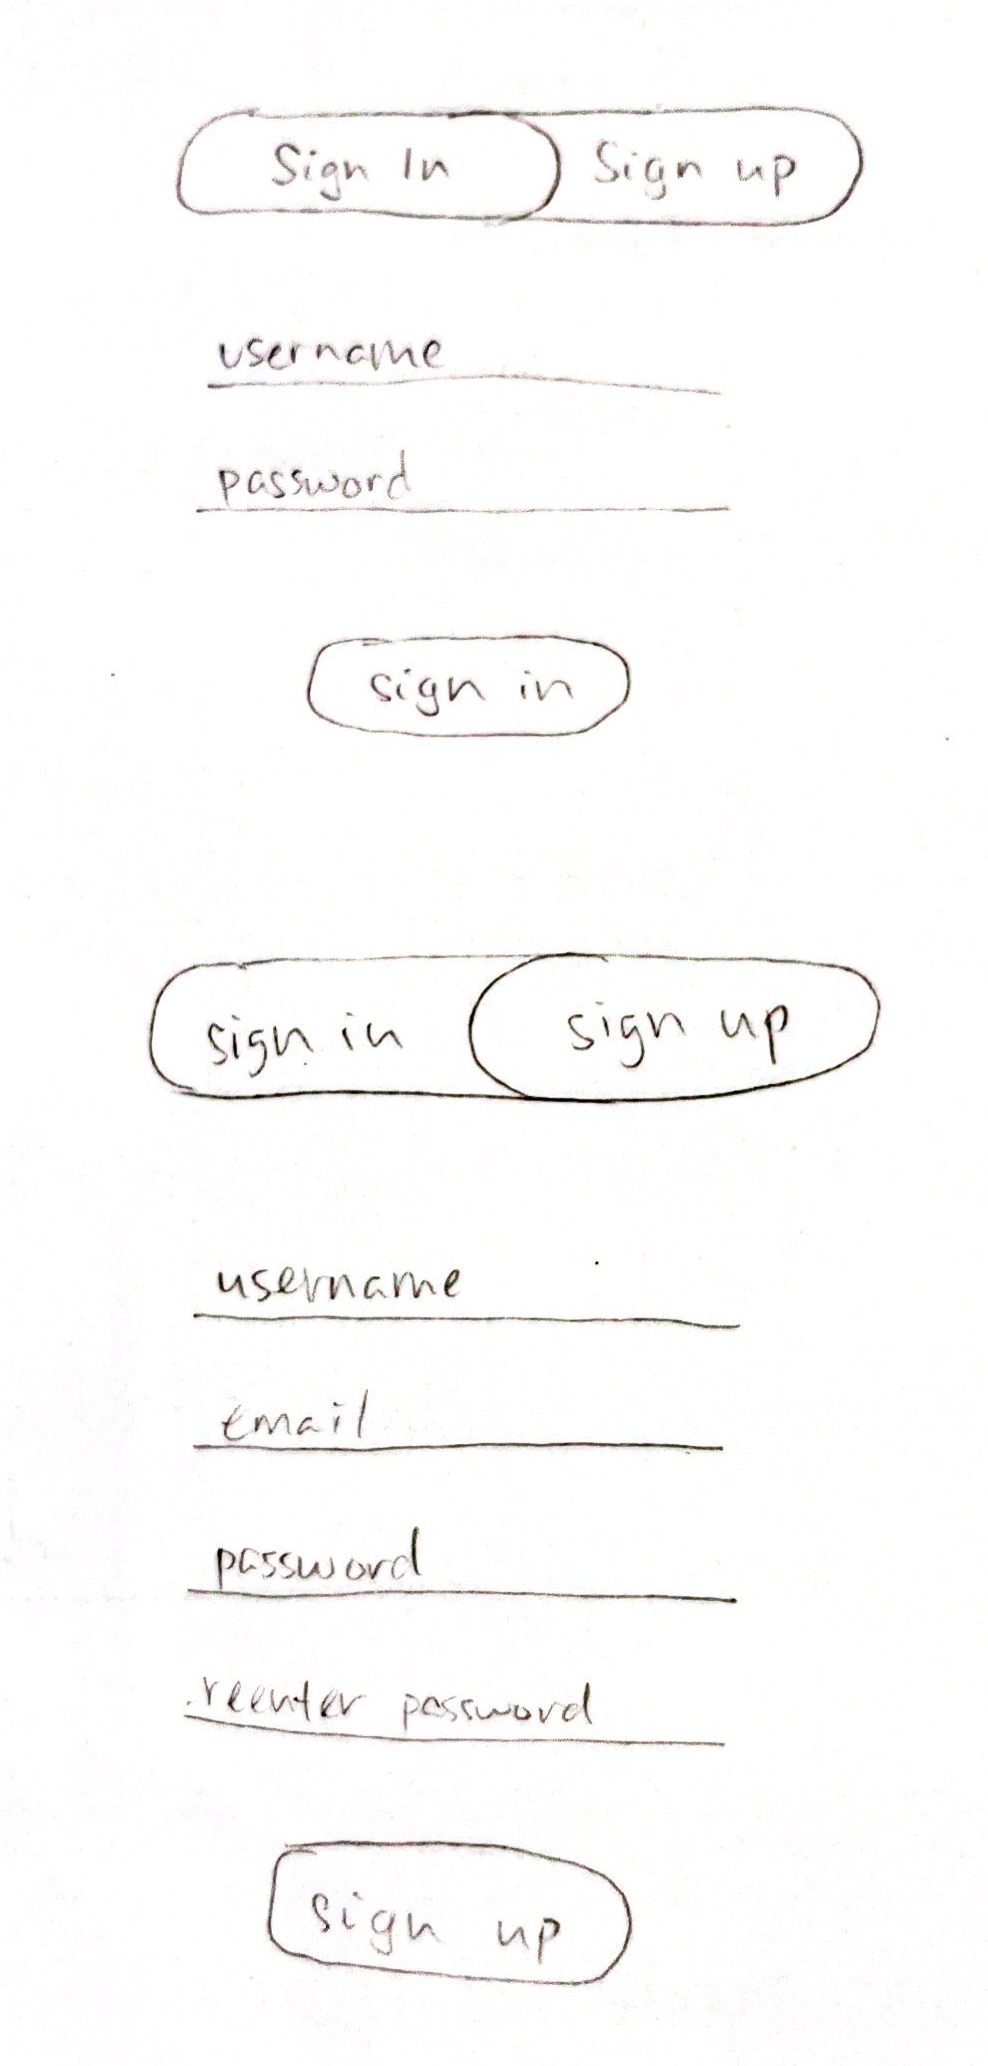 Sign In Sign up
username
password
sign in
sign in sign up
username
email
password
reenter password
sign up